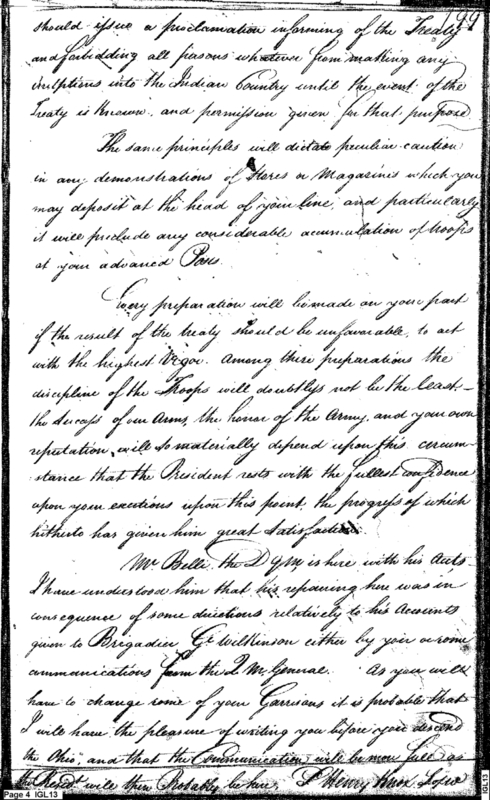 199
should issue a proclamation informing of the Treaty
and forbidding all persons whatever from making any
irruptions into the Indian Country until the event of the
Treaty is known, and permission given for that purpose
The same principles will dictate peculiar caution
in any demonstrations of Stores or Magazines which you
may deposit at the head of your line, and particularly
it will preclude any considerable accumulation of troops
at your advanced Posts.
Every preparation will be made on your part
if the result of the treaty should be unfavorable, to act
with the highest Vigor. Among these preparations the
discipline of the Troops will doubtless not be the least—
the success of our Arms, the honor of the Army, and your own
reputation will so materially depend upon this circum-
stance that the President rests with the fullest confidence
upon your exertions upon this point, the progress of which
hitherto has given him great satisfaction.
Mr Belli, the D Q M is here with his Accts
I have understood him that his repairing here was in
consequence of some directions relatively to his Accounts
given to Brigadier Gl Wilkinson either by you or some
communications from the Q. M. General. As you will
have to change some of your Garrisons it is probable that
I will have the pleasure of writing you before you descend
the Ohio, and that the Communication will be more full as
the Presidt will then Probably be here. Henry Knox
Page 4 IGL13
IGL13